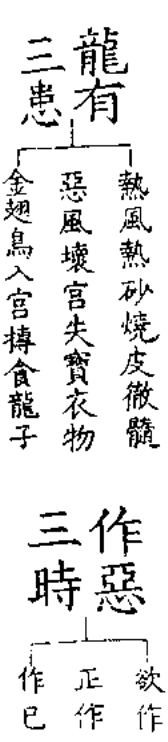 龍有
三患
熱風熱砂燒皮徹髓
惡風壞宮失寶衣物
金翅鳥入宮搏食龍子
作惡
三時
欲作
正作
作已